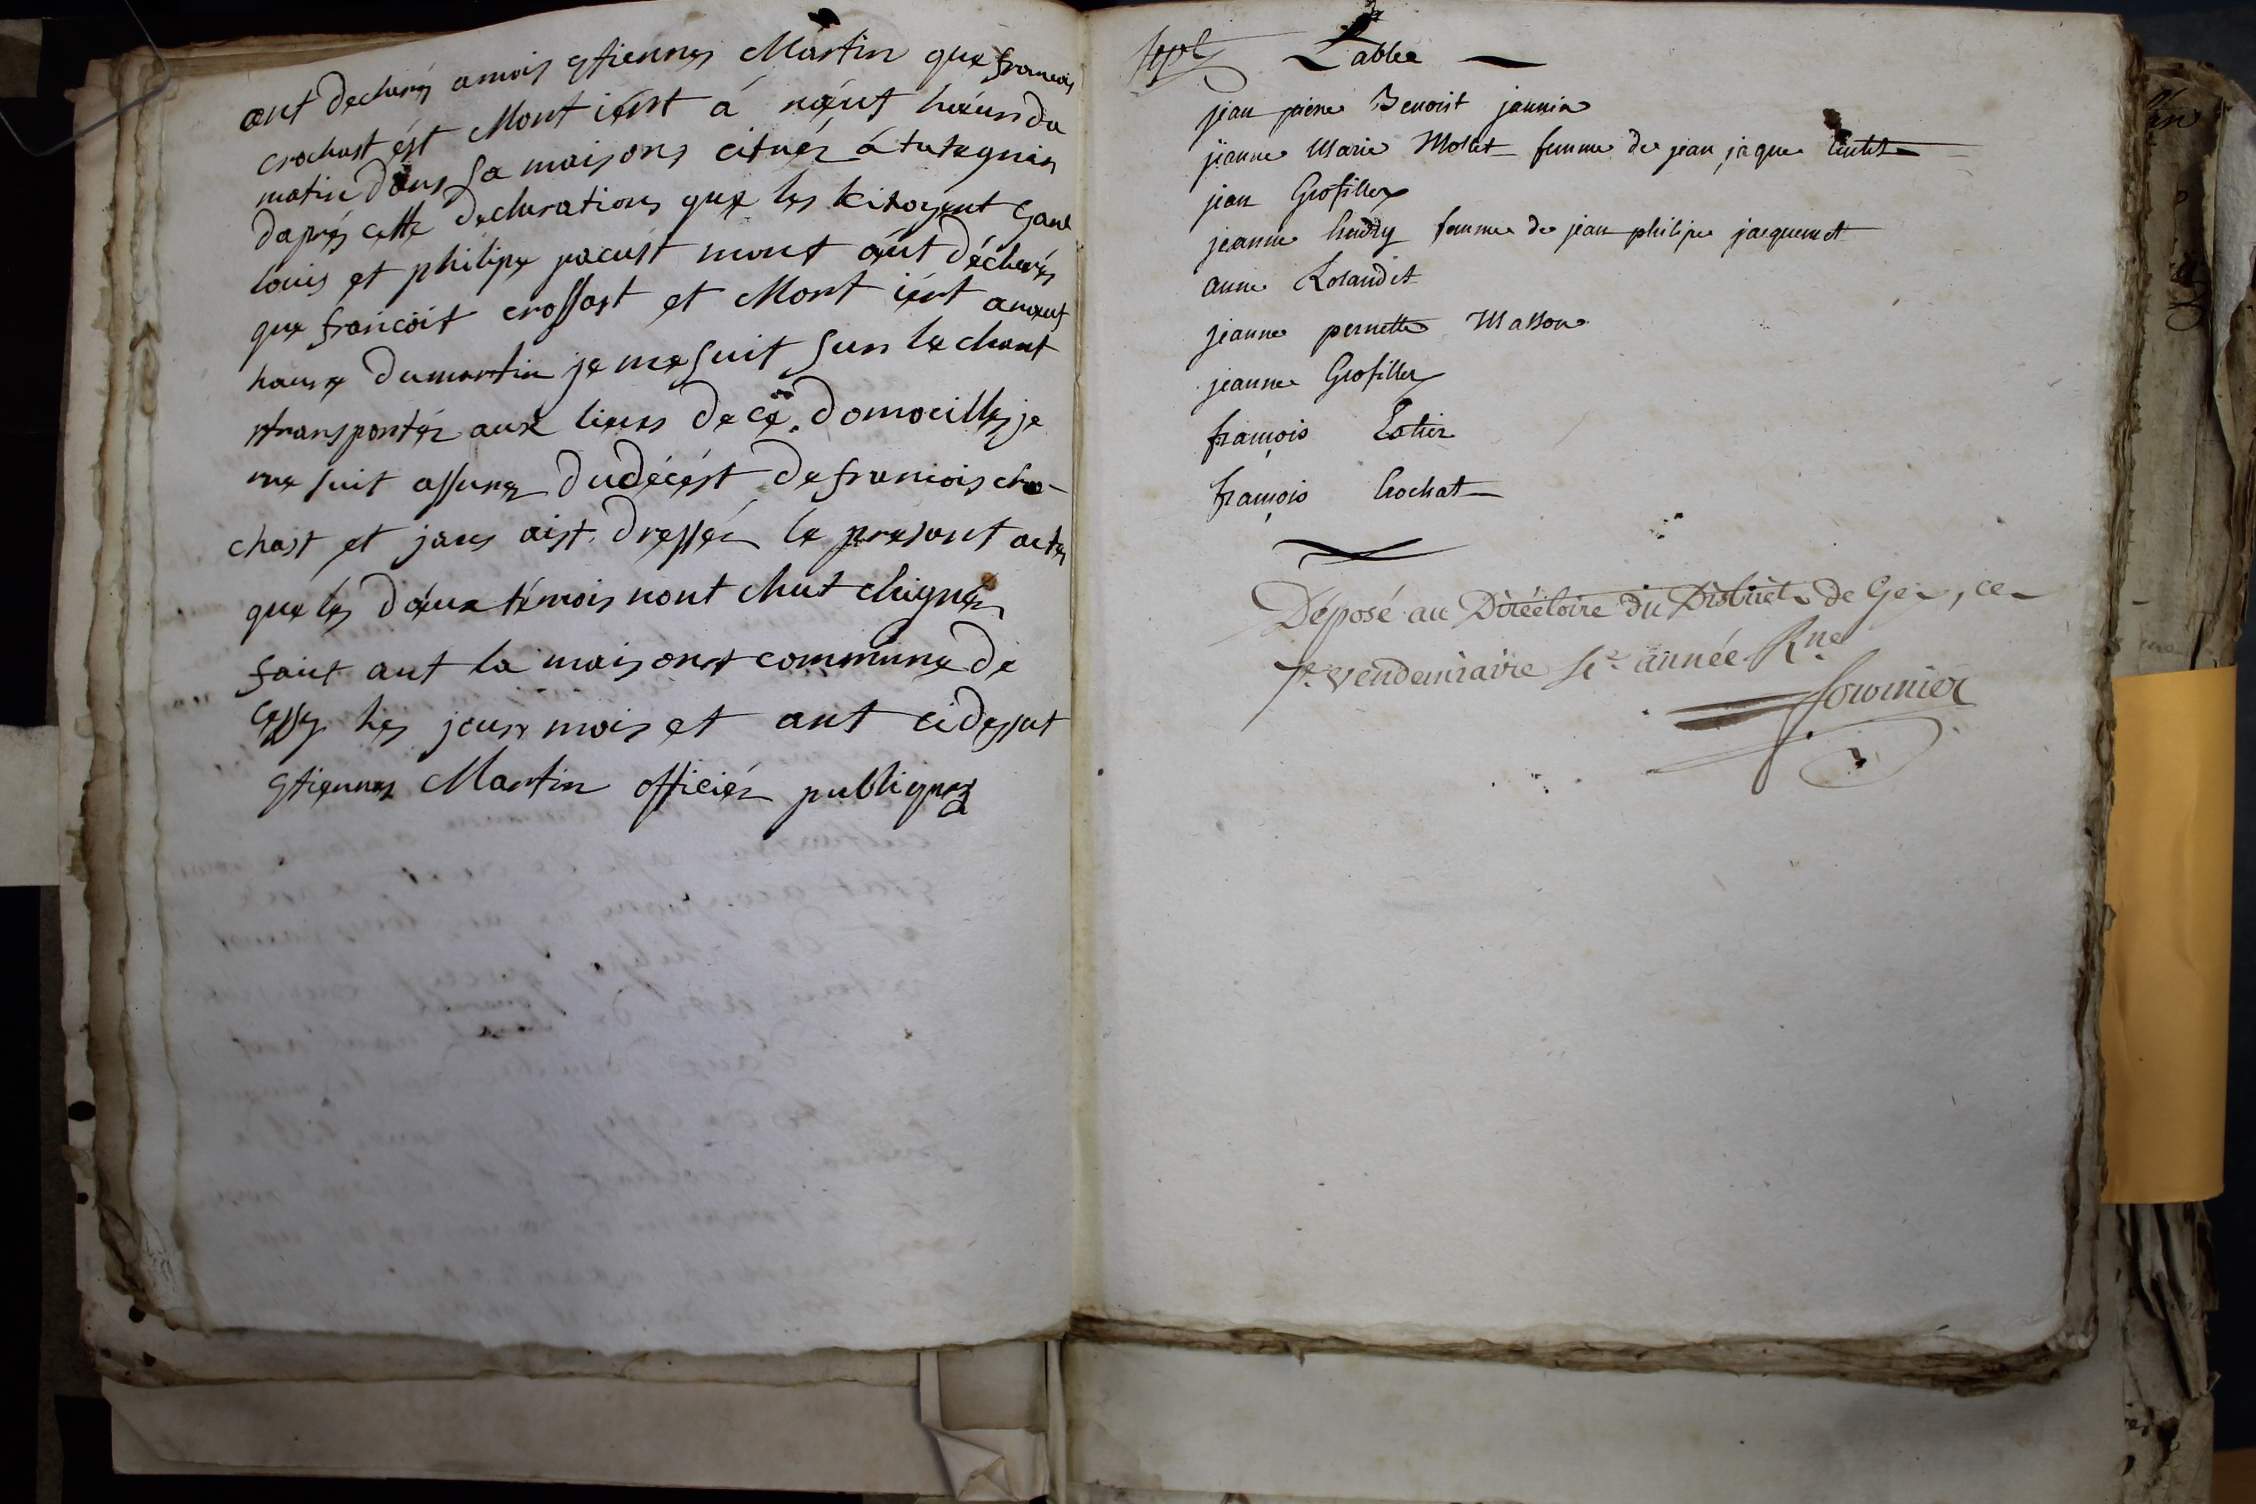 ont decharés amois Estiennes Martin que francois
crochast ést Mort iért á neuf heurs du
matin dans sa maisons cituéz á tutegnin
daprés cette declarations que les kitoyent Jant
louis et philipe pacust mont aut décharés
que francoit crossast et Mort iért aneuf
heure dumartin je me suit sur le chant
transportéz aux lieus de ce domocilles je
me suit assurez dudécést de francois cro-
chast et jans aist dresséz le present actes
que les deux témois nont chut chignéz
fait aut la maisonst commune de
Cessy les jour mois et ant cidessut
Estiennes Martin officiéz publique
sept Table
jean piere Benoist jannin
jeanne Marie Molet femme de jean jaque
jean Grosfiller
jeanne hudry femme de jean philipe jacquemet
anne Rolandet
jeanne pernette Masson
jeanne Grosfiller
françois
françois Crochat
Déposé au Directoire du District de Gex, ce
7e. vendemiaire 4e. année Rne
fournier